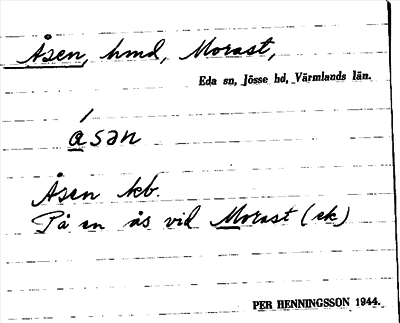 Åsen, hmd, Morast,
Eda sn, Jösse hd, Värmlands län.
ásən
Åsen kb.
På en ås vid Morast (ek)
PER HENNINGSSON 1944.